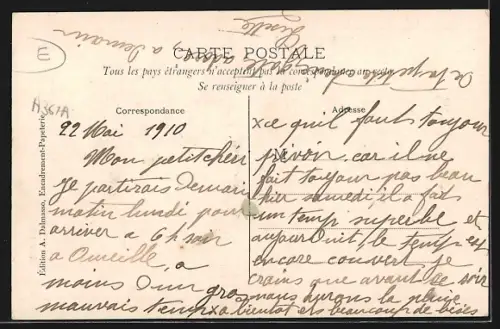 E
CARTE POSTALE
Tous les pays étrangers n'acceptent pas la correspondance au recto
Se renseigner à la poste
A357A
Correspondance
Adresse
Édition A. Dalmasso, Encadrement-Papeterie
22 Mai 1910
Mon petit chéri
Je partirais Demain
matin lundi pour
arriver a 6h soir
a
a
moins D'un gros
mauvais temps x
x ce qu'il faut toujour
prévoir car il ne
fait toujour pas beau
hier samedi, il a fait
un temp superbe et
aujourd'uit, le temp est
encore couvert je
crains que avant ce soir
nous aurons la pluie
a bientot et beaucoup de bises
a Demain
Lisette